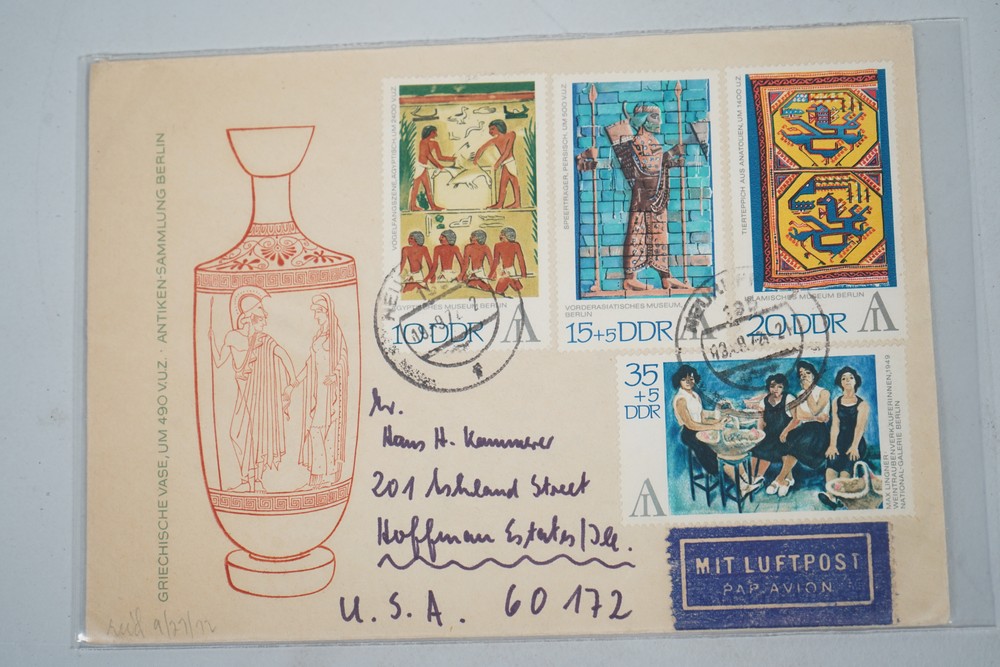 GRIECHISCHE VASE, UM 490 V.U.Z. · ANTIKEN-SAMMLUNG BERLIN
VOGELFANGSZENE, ÄGYPTISCH, UM 2400 V.U.Z.
ÄGYPTISCHES MUSEUM BERLIN
10 DDR
SPEERTRÄGER, PERSISCH, UM 500 V.U.Z.
VORDERASIATISCHES MUSEUM,
BERLIN
15+5 DDR
TIERTEPPICH AUS ANATOLIEN, UM 1400 U.Z.
ISLAMISCHES MUSEUM BERLIN
20 DDR
35
+5
DDR
MAX LINGNER:
WEINTRAUBENVERKÄUFERINNEN, 1949
NATIONAL-GALERIE BERLIN
Mr.
Hans H. Kammerer
201 Ashland Street
Hoffman Estates/Ill.
U.S.A. 60172
MIT LUFTPOST
PAR AVION